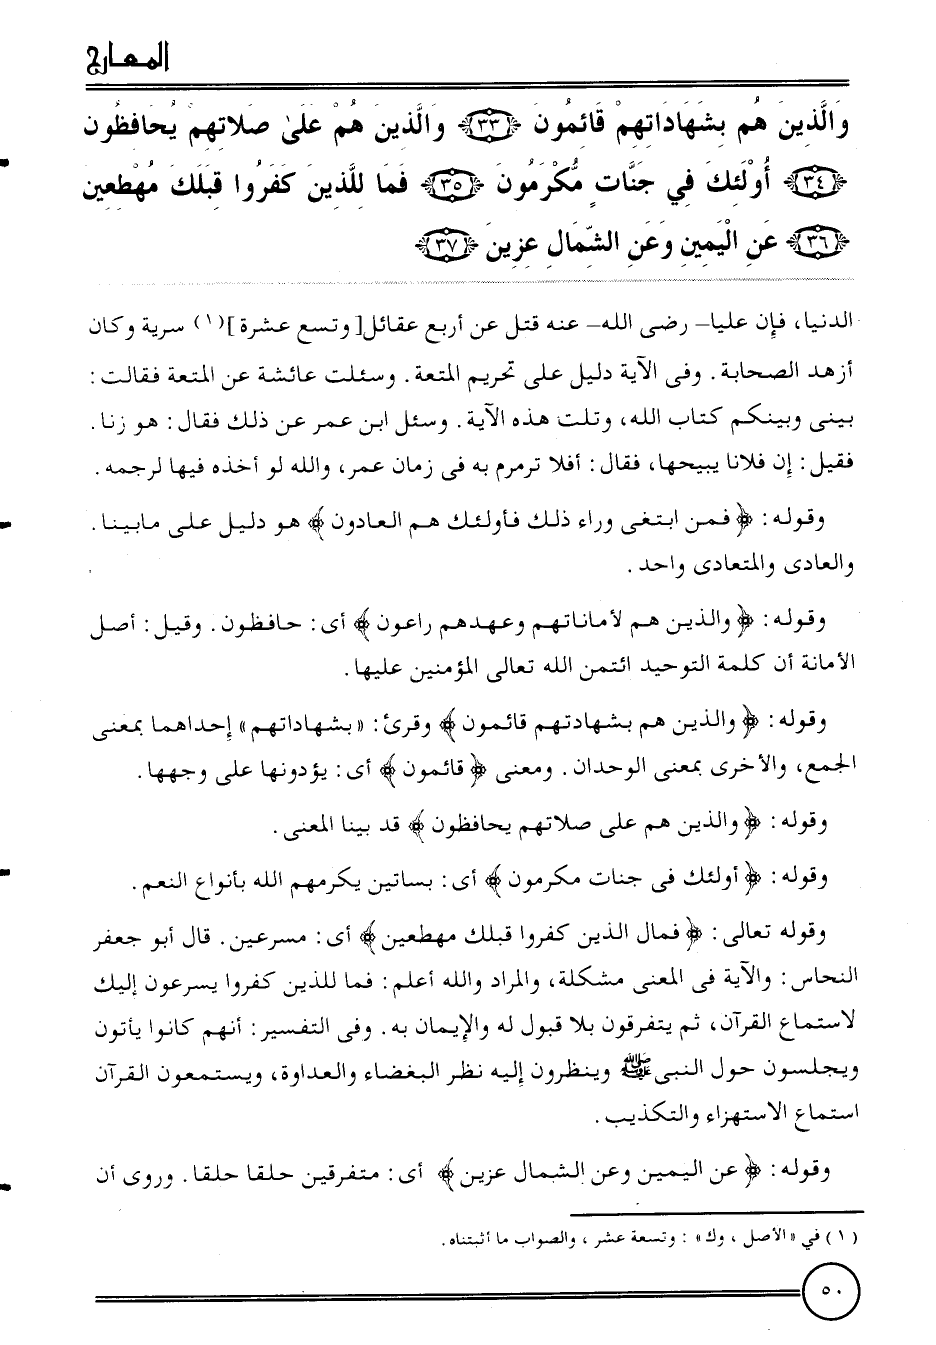 المعارج
وَالَّذِينَ هُم بِشَهَادَاتِهِمْ قَائِمُونَ ﴿٣٣﴾ وَالَّذِينَ هُمْ عَلَىٰ صَلاتِهِمْ يُحَافِظُونَ
﴿٣٤﴾ أُوْلَئِكَ فِي جَنَّاتٍ مُّكْرَمُونَ ﴿٣٥﴾ فَمَا لِلَّذِينَ كَفَرُوا قِبَلَكَ مُهْطِعِينَ
﴿٣٦﴾ عَنِ الْيَمِينِ وَعَنِ الشِّمَالِ عِزِينَ ﴿٣٧﴾
الدنيا، فإن عليا– رضى الله– عنه قتل عن أربع عقائل[وتسع عشرة](١) سرية وكان
أزهد الصحابة. وفى الآية دليل على تحريم المتعة. وسئلت عائشة عن المتعة فقالت:
بينى وبينكم كتاب الله، وتلت هذه الآية. وسئل ابن عمر عن ذلك فقال: هو زنا.
فقيل: إن فلانا يبيحها، فقال: أفلا ترمرم به فى زمان عمر، والله لو أخذه فيها لرجمه.
وقوله: ﴿فمن ابتغى وراء ذلك فأولئك هم العادون﴾ هو دليل على مابينا.
والعادى والمتعادى واحد.
وقوله: ﴿والذين هم لأماناتهم وعهدهم راعون﴾ أى: حافظون. وقيل: أصل
الأمانة أن كلمة التوحيد ائتمن الله تعالى المؤمنين عليها.
وقوله: ﴿والذين هم بشهادتهم قائمون﴾ وقرئ: «بشهاداتهم» إحداهما بمعنى
الجمع، والأخرى بمعنى الوحدان. ومعنى ﴿قائمون﴾ أى: يؤدونها على وجهها.
وقوله: ﴿والذين هم على صلاتهم يحافظون﴾ قد بينا المعنى.
وقوله: ﴿أولئك فى جنات مكرمون﴾ أى: بساتين يكرمهم الله بأنواع النعم.
وقوله تعالى: ﴿فمال الذين كفروا قبلك مهطعين﴾ أى: مسرعين. قال أبو جعفر
النحاس: والآية فى المعنى مشكلة، والمراد والله أعلم: فما للذين كفروا يسرعون إليك
لاستماع القرآن، ثم يتفرقون بلا قبول له والإيمان به. وفى التفسير: أنهم كانوا يأتون
ويجلسون حول النبى ﷺ وينظرون إليه نظر البغضاء والعداوة، ويستمعون القرآن
استماع الاستهزاء والتكذيب.
وقوله: ﴿عن اليمين وعن الشمال عزين﴾ أى: متفرقين حلقا حلقا. وروى أن
(١) في «الأصل ، وك» : وتسعة عشر ، والصواب ما أثبتناه.
٥٠